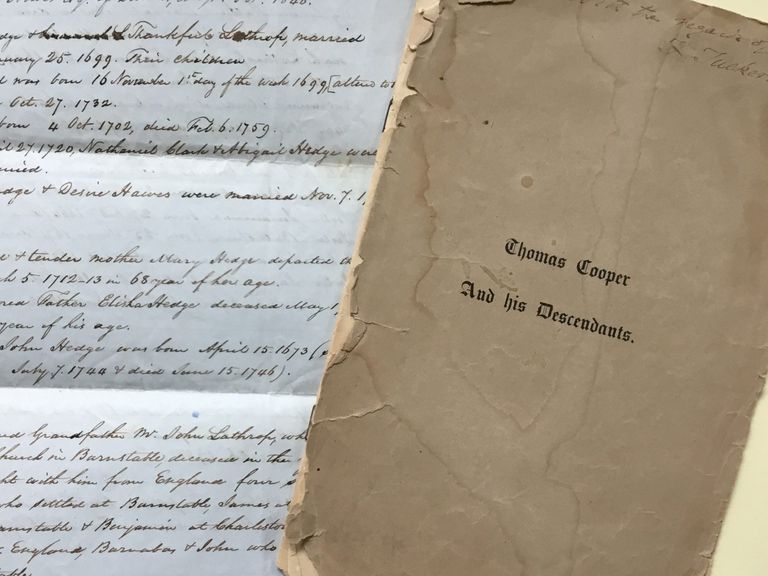 & Thankful Lathrop, married
25. 1699. Their children
was born 16 November 1st day of the week 1699 [attend
Oct. 27. 1732.
born 4 Oct. 1702, died Feb. 6. 1759.
27. 1720, Nathaniel Clark & Abigail Hedge were
& Desire Hawes were married Nov. 7. 1
& tender mother Mary Hedge departed
5. 1712-13 in 68 year of her age.
Father Elisha Hedge deceased May
year of his age.
John Hedge was born April 15. 1673
July 7. 1744 & died June 15. 1746).
Grandfather Mr. John Lathrop, who
Church in Barnstable deceased in the
with him from England four
who settled at Barnstable, James
& Benjamin at Charlestown
England, Barnabas & John who
the regards of
Tucker
Thomas Cooper
And his Descendants.